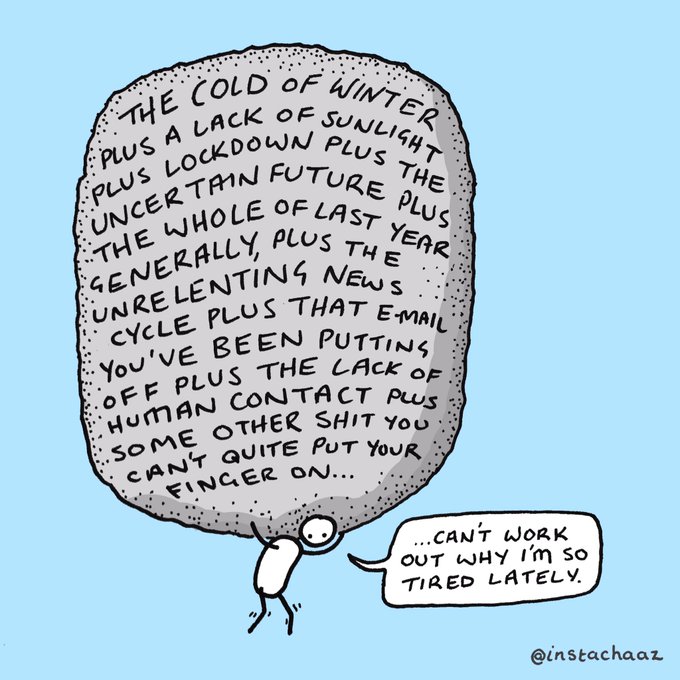 THE COLD OF WINTER
PLUS A LACK OF SUNLIGHT
PLUS LOCKDOWN PLUS THE
UNCERTAIN FUTURE PLUS
THE WHOLE OF LAST YEAR
GENERALLY, PLUS THE
UNRELENTING NEWS
CYCLE PLUS THAT E-MAIL
YOU'VE BEEN PUTTING
OFF PLUS THE LACK OF
HUMAN CONTACT PLUS
SOME OTHER SHIT YOU
CAN'T QUITE PUT YOUR
FINGER ON...
...CAN'T WORK
OUT WHY I'M SO
TIRED LATELY.
@instachaaz